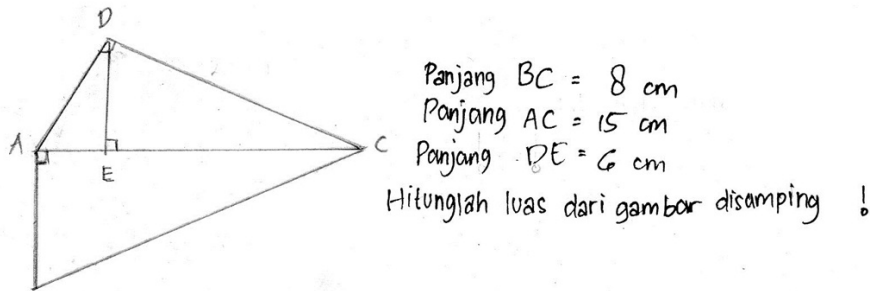 D
A
C
E
Panjang BC = 8 cm
Panjang AC = 15 cm
Panjang DE = 6 cm
Hitunglah luas dari gambar disamping !